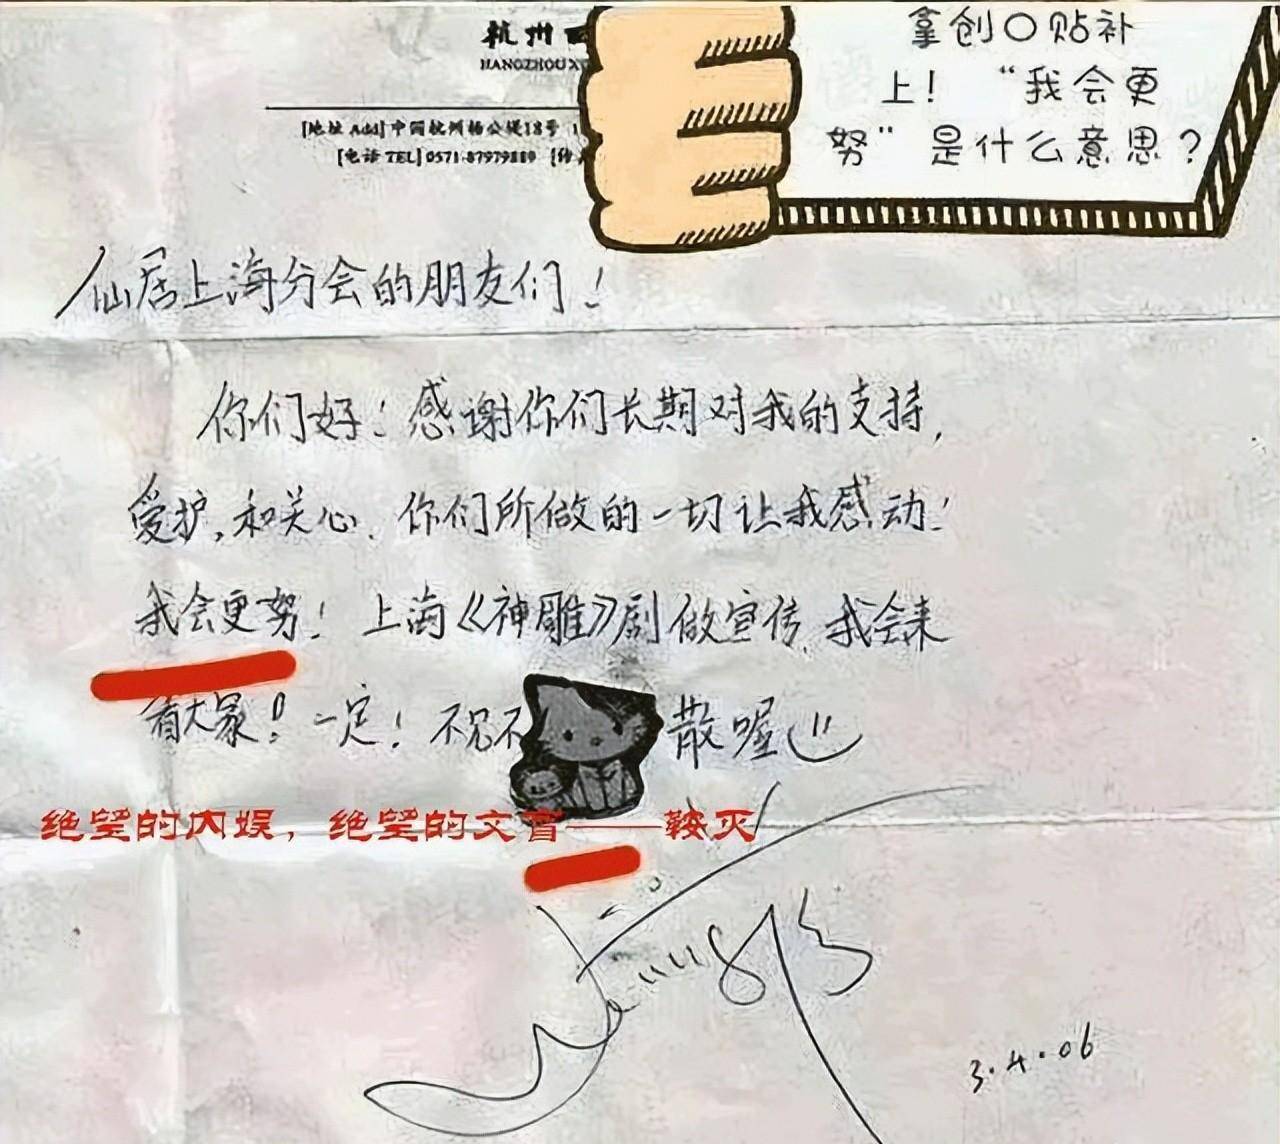 杭州
HANGZHOU X
[地址 Add] 中国杭州杨公堤18号
[电话 TEL] 0571-87979889
拿创〇贴补
上！“我会更
努”是什么意思？
仙居上海分会的朋友们！
你们好！感谢你们长期对我的支持，
爱护，和关心．你们所做的一切让我感动！
我会更努！上海《神雕》剧做宣传，我会来
看大家！一定！不见不散喔
绝望的内娱，绝望的文盲——鞍灭
3.4.06